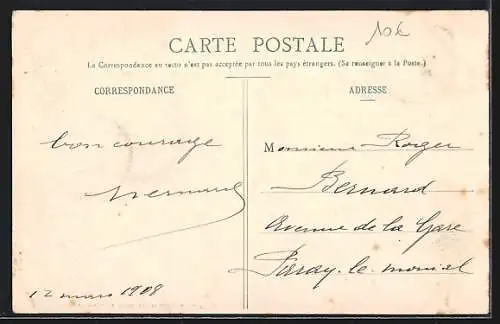 10k
CARTE POSTALE
La Correspondance au recto n'est pas acceptée par tous les pays étrangers. (Se renseigner à la Poste.)
CORRESPONDANCE
ADRESSE
bon courage
12 mars 1908
Monsieur Roger
Bernard
Avenue de la Gare
Paray-le-monial